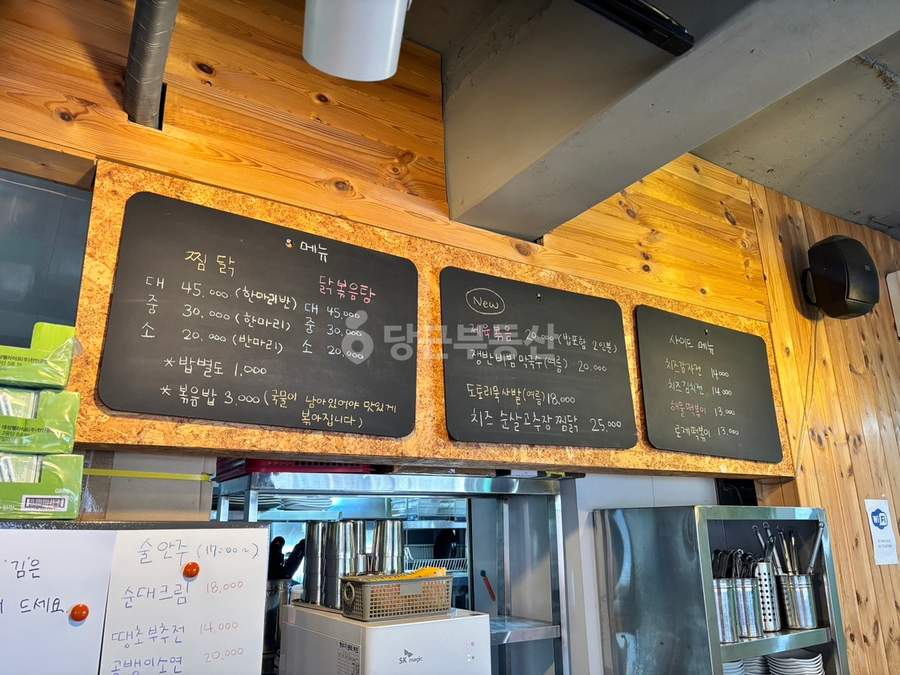 메뉴
찜닭
대 45,000 (한마리반)
중 30,000 (한마리)
소 20,000 (반마리)
닭볶음탕
대 45,000
중 30,000
소 20,000
*밥별도 1,000
*볶음밥 3,000 (국물이 남아있어야 맛있게
볶아집니다)
New
제육볶음 20,000 (밥포함 2인분)
쟁반비빔막국수(여름) 20,000
도토리묵사발(여름) 18,000
치즈 순살고추장찜닭 25,000
사이드 메뉴
치즈감자전 14,000
치즈김치전 14,000
해물떡볶이 13,000
로제떡볶이 13,000
당근부동산
WiFi
'김'은
드세요.
술안주 (17:00~)
순대크림 18,000
땡초부추전 14,000
골뱅이소면 20,000
SK magic